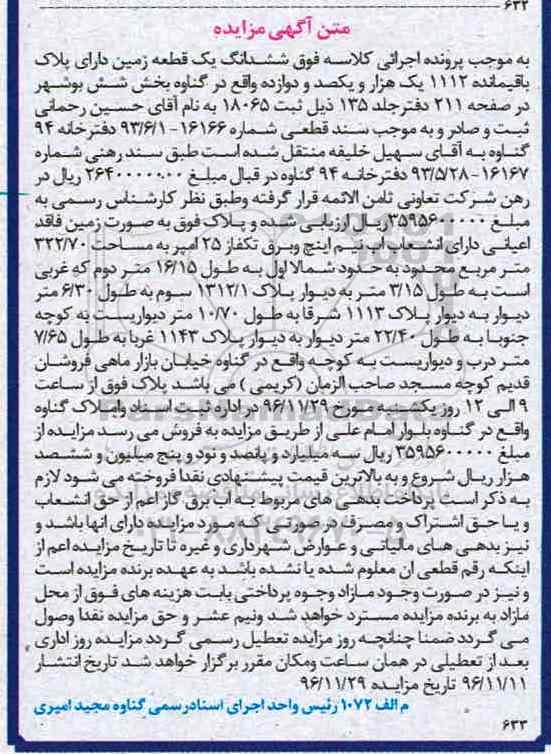 ۶۳۲
متن آگهی مزایده
به موجب پرونده اجرائی کلاسه فوق ششدانگ یک قطعه زمین دارای پلاک
باقیمانده ۱۱۱۲ یک هزار و یکصد و دوازده واقع در گناوه بخش شش بوشهر
در صفحه ۲۱۱ دفتر جلد ۱۳۵ ذیل ثبت ۱۸۰۶۵ به نام آقای حسین رحمانی
ثبت و صادر و به موجب سند قطعی شماره ۱۶۱۶۶-۹۳/۶/۱ دفترخانه ۹۴
گناوه به آقای سهیل خلیفه منتقل شده است طبق سند رهنی شماره
۱۶۱۶۷-۹۳/۵/۲۸ دفترخانه ۹۴ گناوه در قبال مبلغ ۲۶۴۰۰۰۰۰۰۰ ریال در
رهن شرکت تعاونی ثامن الائمه قرار گرفته وطبق نظر کارشناس رسمی به
مبلغ ۳۵۹۵۶۰۰۰۰۰ ریال ارزیابی شده و پلاک فوق به صورت زمین فاقد
اعیانی دارای انشعاب اب نیم اینچ وبرق تکفاز ۲۵ امپر به مساحت ۳۲۲/۷۰
متر مربع محدود به حدود شمالا اول به طول ۱۶/۱۵ متر دوم که غربی
است به طول ۳/۱۵ متر به دیوار پلاک ۱۳۱۲/۱ سوم به طول ۶/۳۰ متر
دیوار به دیوار پلاک ۱۱۱۳ شرقا به طول ۱۰/۷۰ متر دیواریست به کوچه
جنوبا به طول ۲۲/۴۰ متر دیوار به دیوار پلاک ۱۱۴۳ غربا به طول ۷/۶۵
متر درب و دیواریست به کوچه واقع در گناوه خیابان بازار ماهی فروشان
قدیم کوچه مسجد صاحب الزمان (کریمی) می باشد پلاک فوق از ساعت
۹ الی ۱۲ روز یکشنبه مورخ ۹۶/۱۱/۲۹ در اداره ثبت اسناد واملاک گناوه
واقع در گناوه بلوار امام علی از طریق مزایده به فروش می رسد مزایده از
مبلغ ۳۵۹۵۶۰۰۰۰۰ ریال سه میلیارد و پانصد و نود و پنج میلیون و ششصد
هزار ریال شروع و به بالاترین قیمت پیشنهادی نقدا فروخته می شود لازم
به ذکر است پرداخت بدهی های مربوط به آب برق گاز اعم از حق انشعاب
و یا حق اشتراک و مصرف در صورتی که مورد مزایده دارای انها باشد و
نیز بدهی های مالیاتی و عوارض شهرداری و غیره تا تاریخ مزایده اعم از
اینکه رقم قطعی ان معلوم شده یا نشده باشد به عهده برنده مزایده است
و نیز در صورت وجود مازاد وجوه پرداختی بابت هزینه های فوق از محل
مازاد به برنده مزایده مسترد خواهد شد ونیم عشر و حق مزایده نقدا وصول
می گردد ضمنا چنانچه روز مزایده تعطیل رسمی گردد مزایده روز اداری
بعد از تعطیلی در همان ساعت ومکان مقرر برگزار خواهد شد تاریخ انتشار
۹۶/۱۱/۱۱ تاریخ مزایده ۹۶/۱۱/۲۹
م الف ۱۰۷۲ رئیس واحد اجرای اسنادرسمی گناوه مجید امیری
۶۳۳